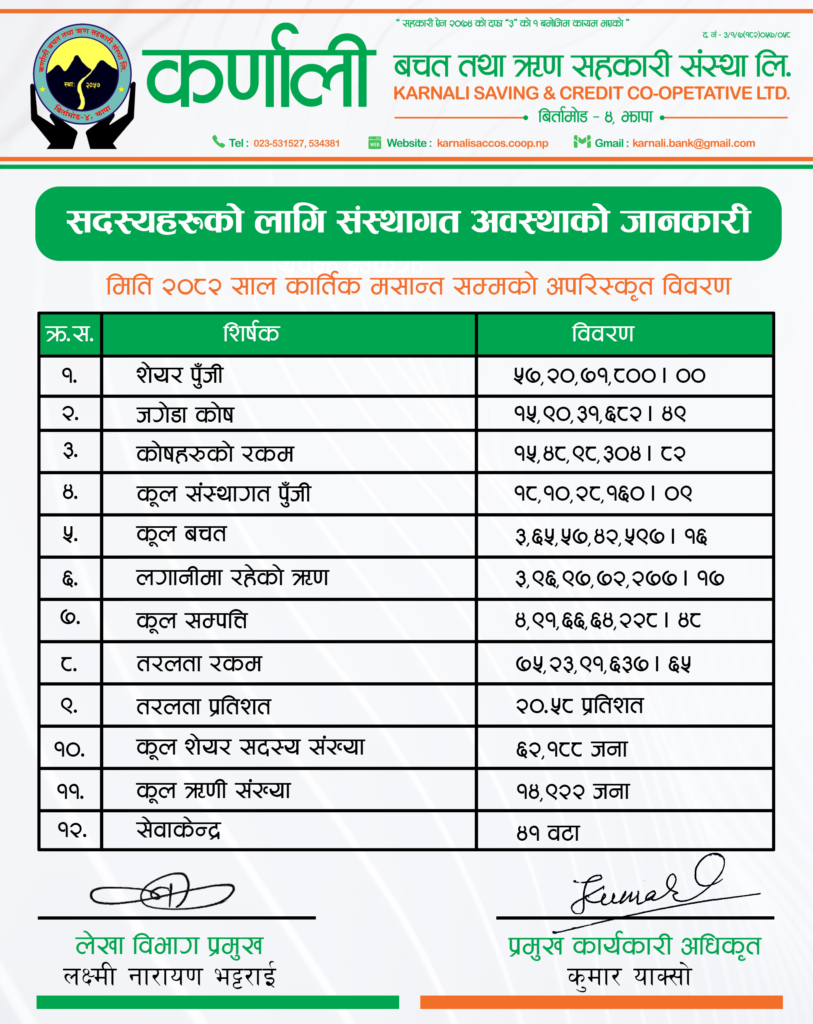 " सहकारी ऐन २०७४ को दफा "३" को १ बमोजिम कायम भएको "
द. नं - ३/१/७(१८२)०५७/०५८
कर्णाली बचत तथा ऋण सहकारी संस्था लि.
स्था: २०५७
बिर्तामोड-४, झापा
कर्णाली
बचत तथा ऋण सहकारी संस्था लि.
KARNALI SAVING & CREDIT CO-OPETATIVE LTD.
बिर्तामोड - ४, झापा
Tel : 023-531527, 534381 Website : karnalisaccos.coop.np Gmail : karnali.bank@gmail.com
सदस्यहरुको लागि संस्थागत अवस्थाको जानकारी
मिति २०८२ साल कार्तिक मसान्त सम्मको अपरिस्कृत विवरण
क्र.स. शिर्षक विवरण
१. शेयर पुँजी ५७,२०,७१,८०० । ००
२. जगेडा कोष १५,९०,३१,६८२ । ४९
३. कोषहरुको रकम १५,४८,९८,३०४ । ८२
४. कूल संस्थागत पुँजी १८,१०,२८,१६० । ०९
५. कूल बचत ३,६५,५७,४२,५९७ । १६
६. लगानीमा रहेको ऋण ३,९६,९७,७२,२७७ । १७
७. कूल सम्पत्ति ४,९१,६६,६४,२२८ । ४८
८. तरलता रकम ७५,२३,९१,६३७ । ६५
९. तरलता प्रतिशत २०.५८ प्रतिशत
१०. कूल शेयर सदस्य संख्या ६२,१८८ जना
११. कूल ऋणी संख्या १४,९२२ जना
१२. सेवाकेन्द्र ४१ वटा
लेखा विभाग प्रमुख
लक्ष्मी नारायण भट्टराई
Kumar
प्रमुख कार्यकारी अधिकृत
कुमार याक्सो